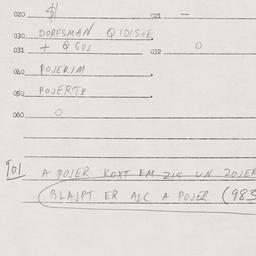 020 $1 021 —
030 DORFSMAN QIDISTE
031 + Q GOJ 032 O
040 POJERIM
050 POJERTE
060 O
901 A POJER KOXT EM ZIS UN ZOJER
BLAJPT ER ALC A POJER (983